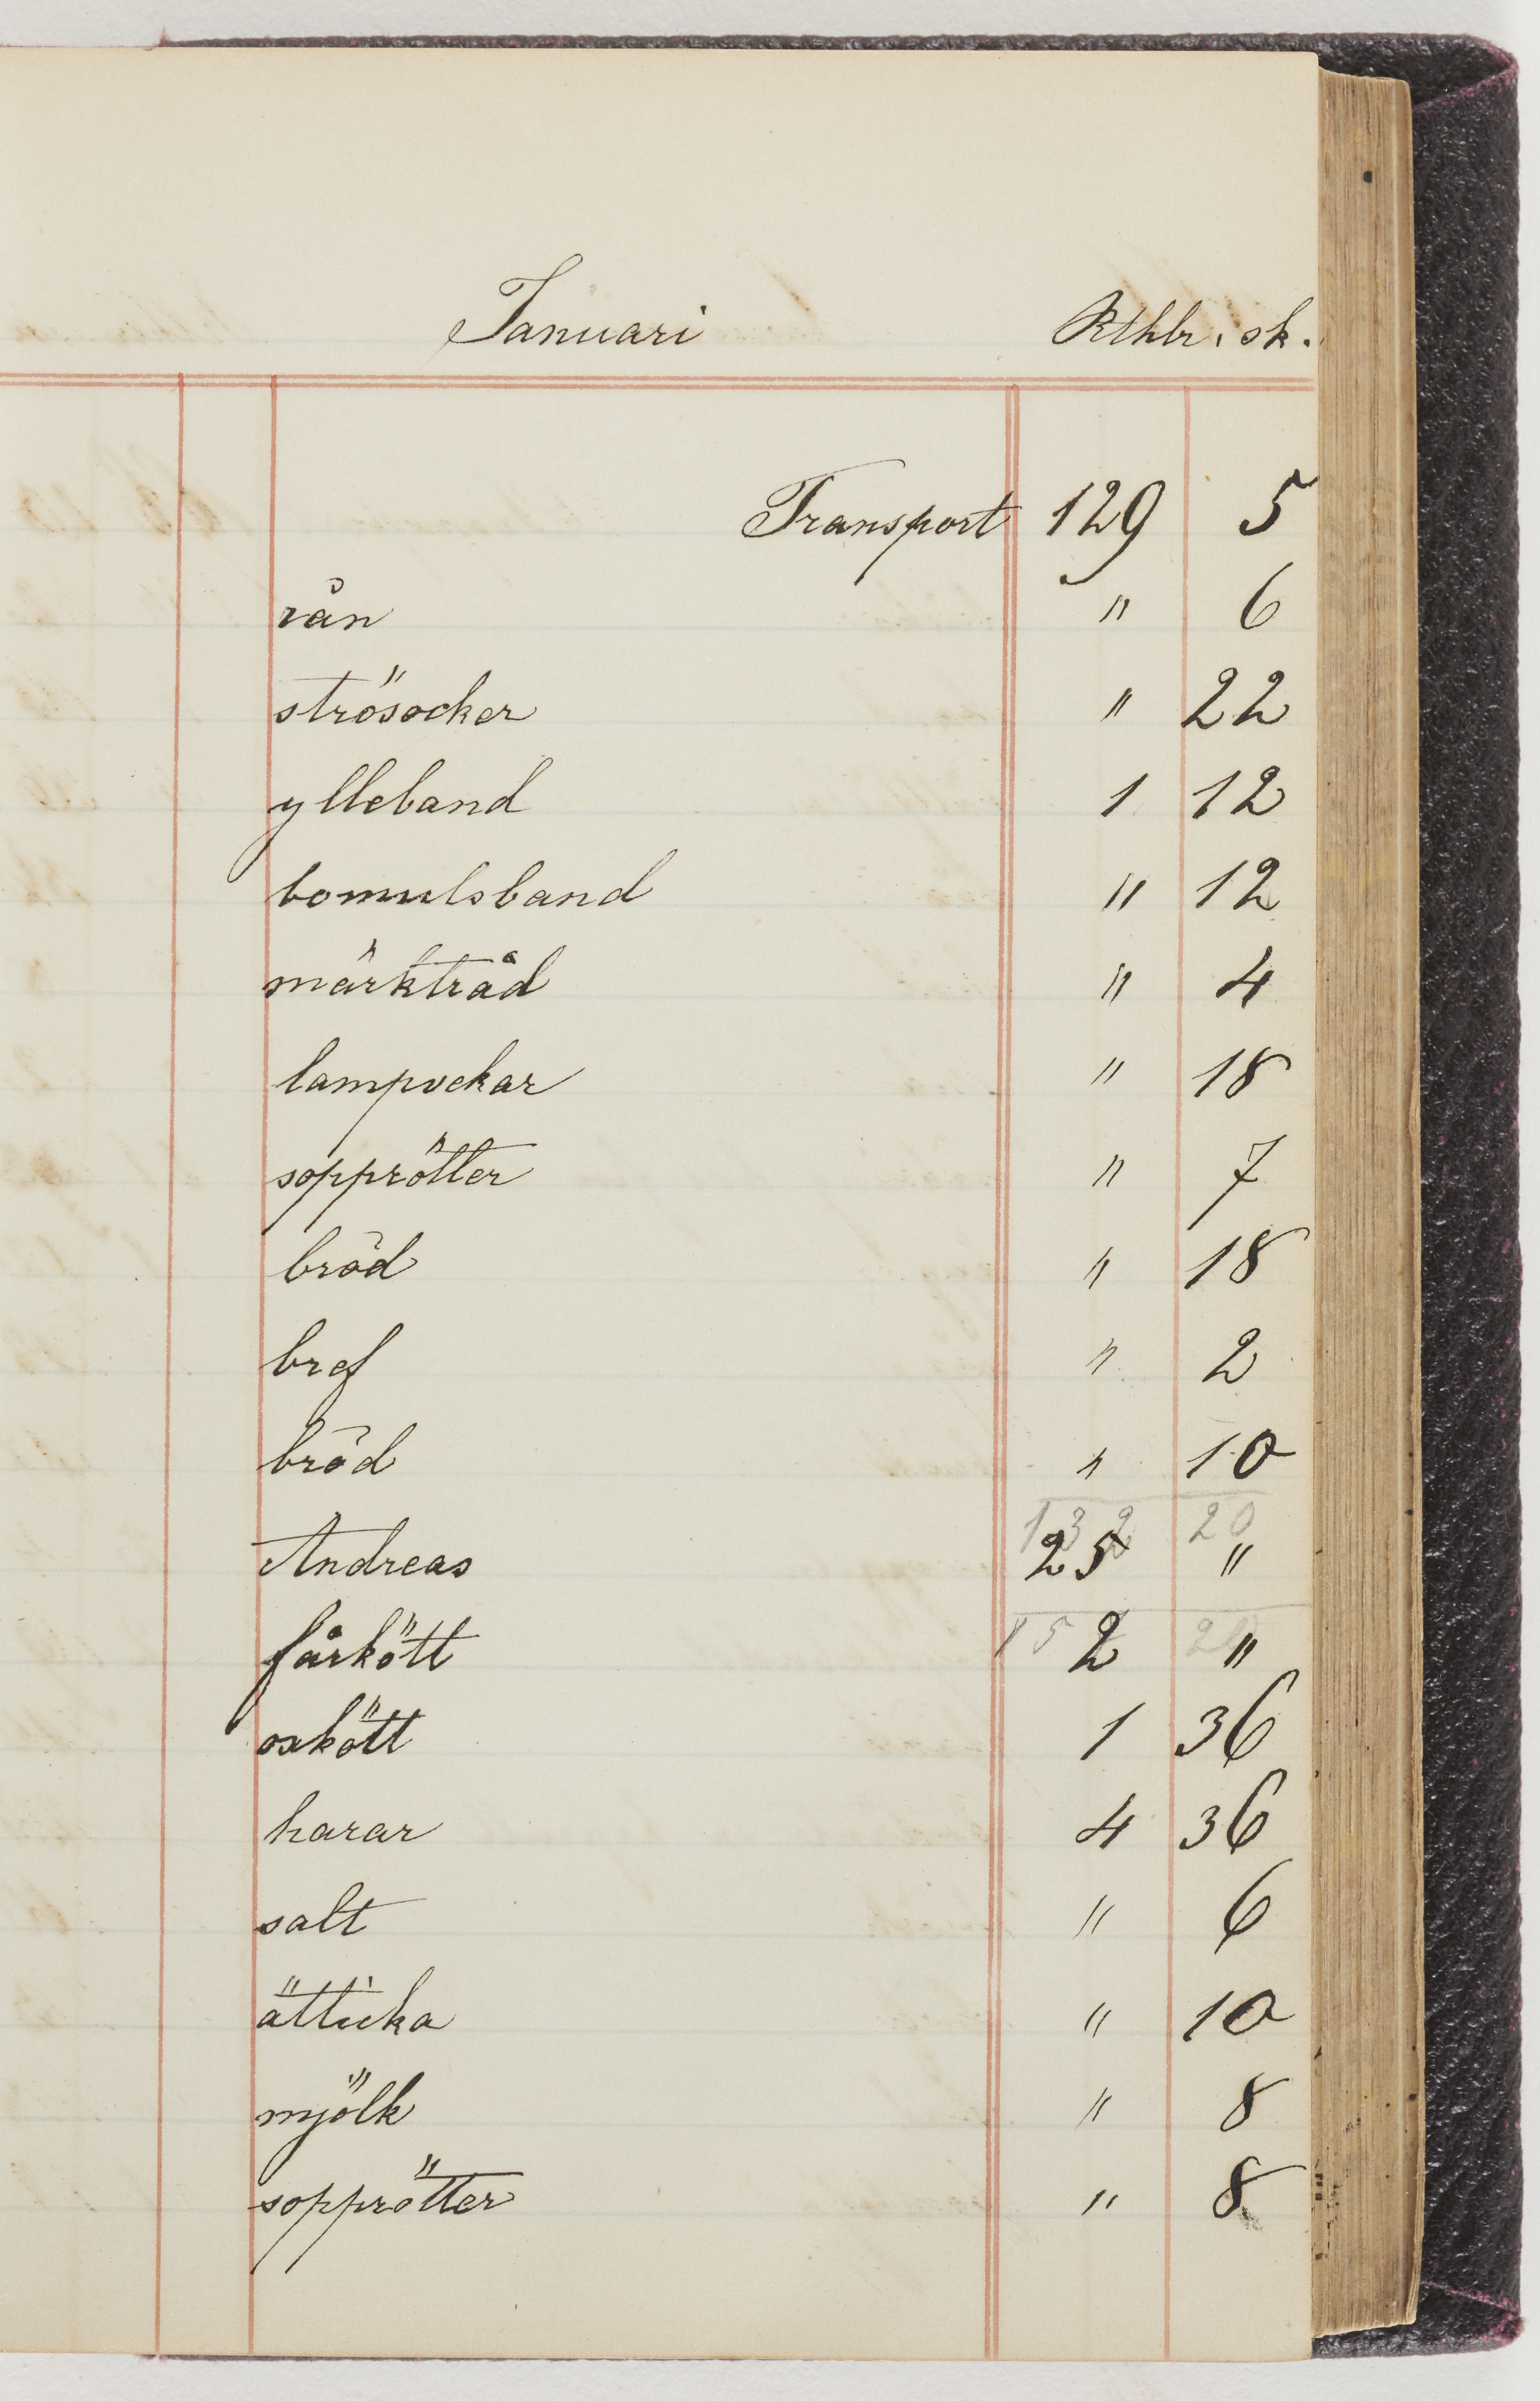 Januari Rthlr. sk.
Transport 129 5
rån " 6
strösocker " 22
ylleband 1 12
bomulsband " 12
märktråd " 4
lampvekar " 18
sopprötter " 7
bröd " 18
bref " 2
bröd " 10
132 20
Andreas 25 "
fårkött 2 "
oxkött 1 36
harar 4 36
salt " 6
ätticka " 10
mjölk " 8
sopprötter " 8